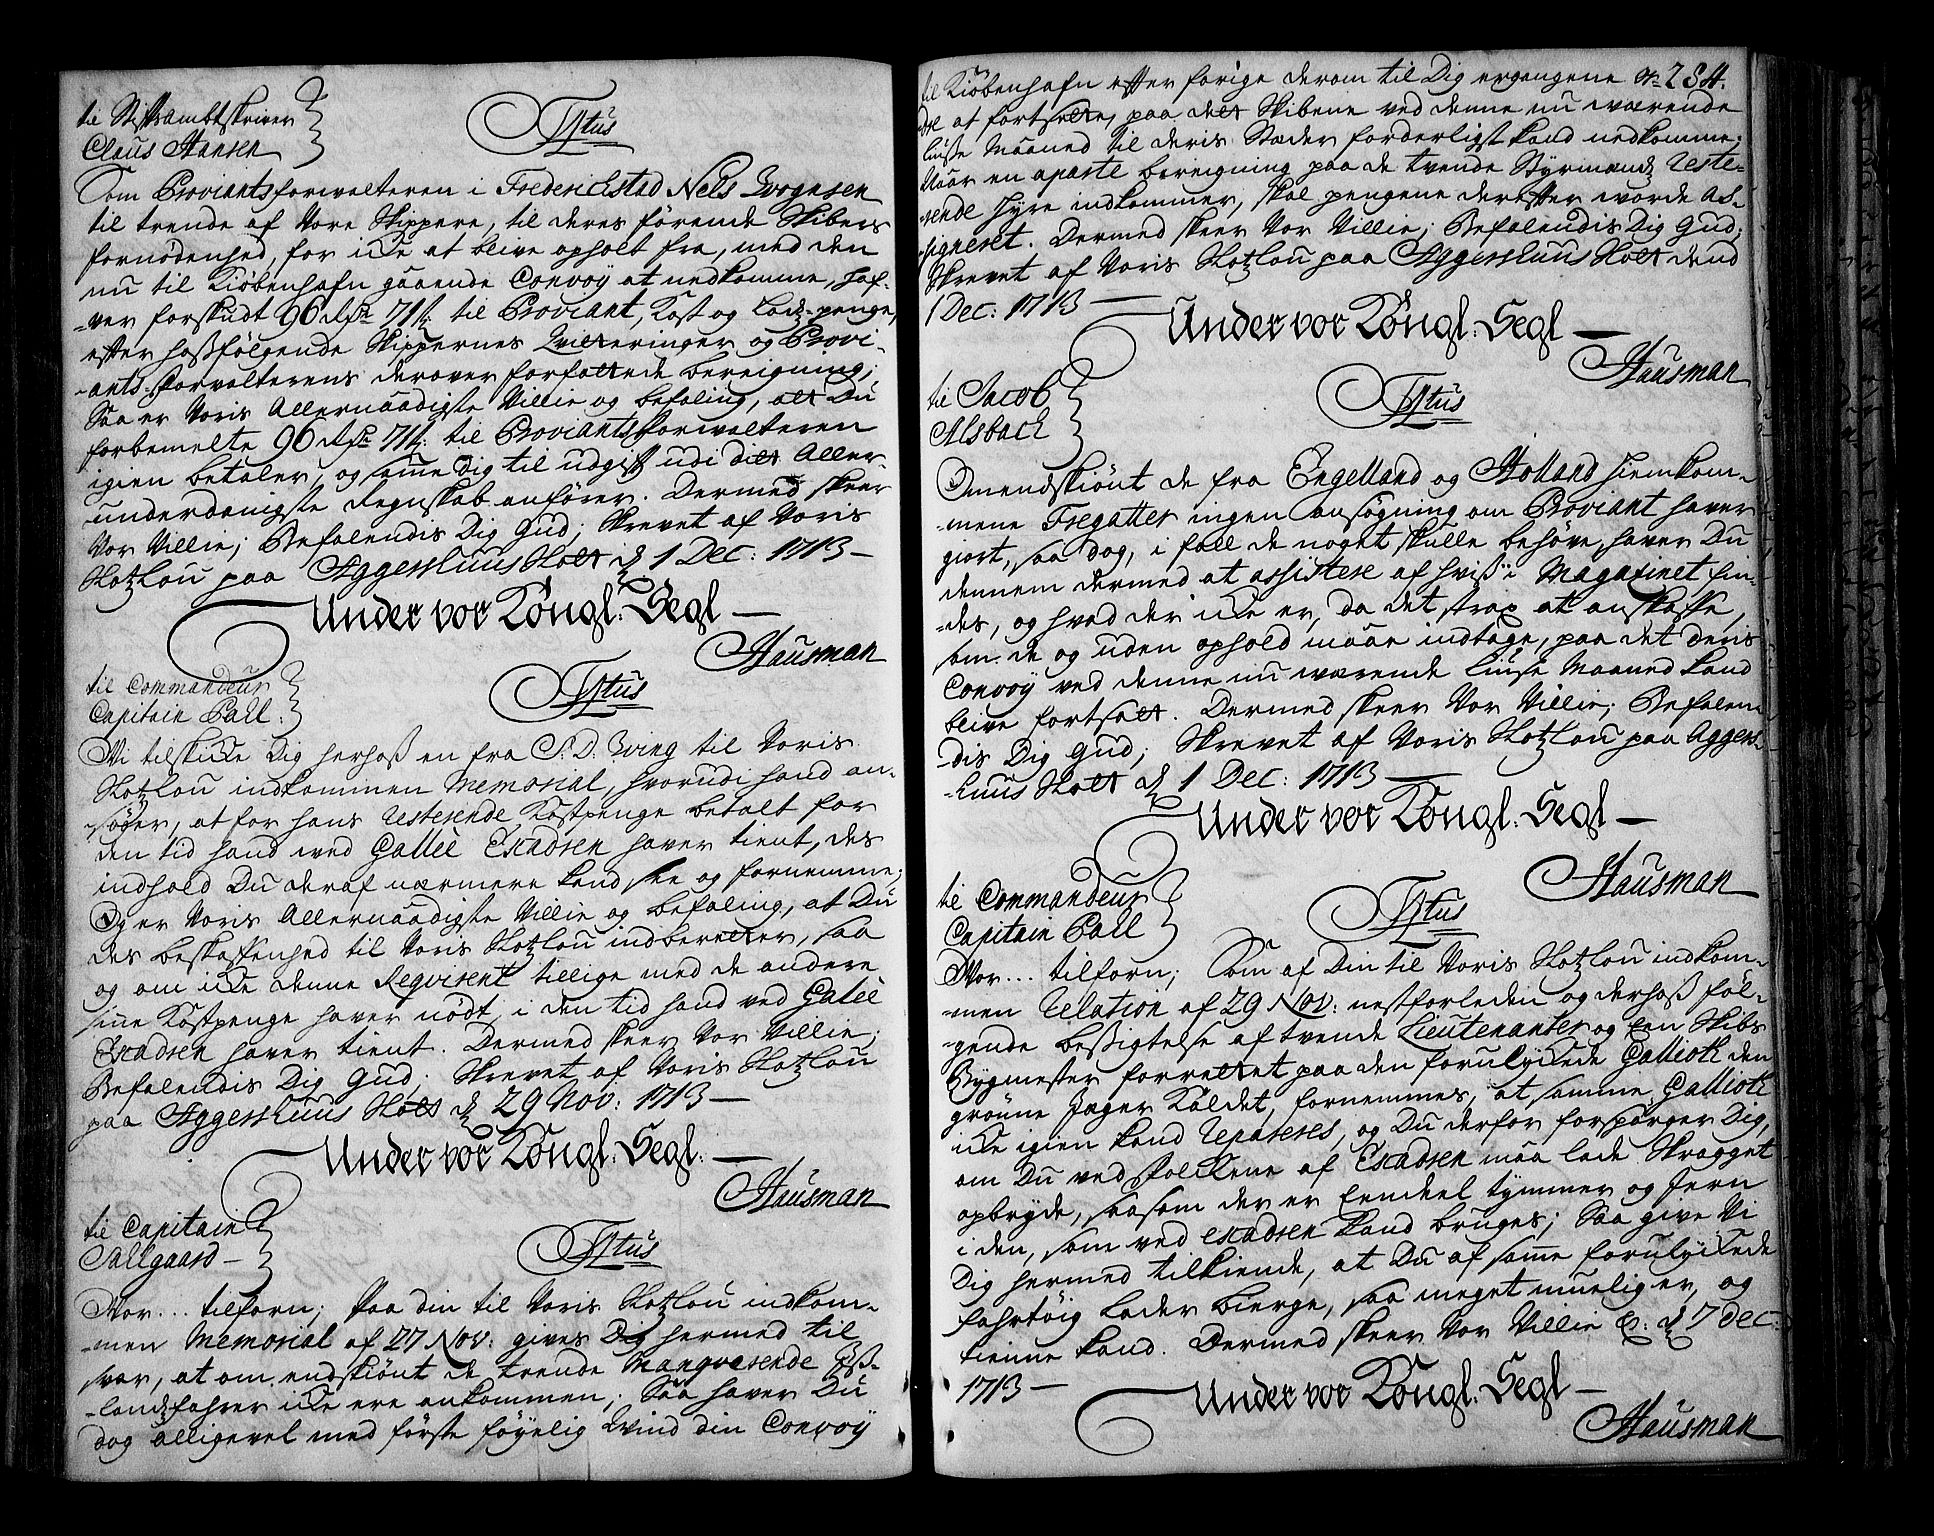 til Stiftsambtskriver
Claus Hansen
Titus
Som Proviantsforvalteren i Friderichstad Nels Svognsen
til trende af Vore Skippere, til deres förende Skibers
fornödenhed, for icke at blive opholt fra, med den
nu til Kiöbenhafn gaaende Convoÿ at nedkomme, haf-
-ver forskudt 96 Rdr 71 s. til Proviant, Kost og Lodz-penge,
efter hoßfölgende Skippernes Qvitteringer og Provi-
-ants-Forvalterens derover forfattede bereigning;
Saa er Voris Allernaadigste Villie og befaling, att Du
forbemelte 96 Rdr 71 s. til Proviantsforvalteren
igien betaler, og samme Dig til udgift udi ditt Aller-
-underdanigste Regnskab anförer. Dermed skeer
Vor Villie; Befalendis Dig Gud; Skrevet af Voris
Slotzlou paa Aggershuus Slott d. 1 Dec: 1713 —
Under vor Kongl: Segl —
Hausman
til Commandeur
Capitain Pall.
Titus
Vi tilskicke Dig herhoß en fra C. D. Qving til Voris
Slotzlou indkommen Memorial, hvorudi hand an-
-söger, at for hans resterende Kostpenge betalt for
den tid hand ved Galleÿ Escadren haver tient, des
indhold Du deraf nærmere kand see og fornemme;
Og er Voris Allernaadigste Villie og befaling, at Du
des beskaffenhed til Voris Slotzlou indberetter, saa
og om icke denne Reqvirent tillige med de andere
sine Kostpenge haver nödt, i den tid hand ved Galeÿ
Escadren haver tient. Dermed skeer Vor Villie;
Befalendis Dig Gud; Skrevet af Voris Slotzlou
paa Aggershuus Slott d. 29 Nov: 1713 —
Under vor Kongl: Segl: —
Hausman
til Capitain
Pallgaard —
Titus
Vor ... tilforn; Paa din til Voris Slotzlou indkom-
-men Memorial af 27 Nov: gives Dig hermed til
svar, at om endskiönt de trende Manqverende
-landsfahrer icke ere ankommen; Saa haver Du
dog alligevel med förste föÿelig Wind din Convoÿ
til Kiöbenhafn efter forige derom til Dig ergangene 284.
at fortsette, paa dett Skibene ved denne nu værende
liuse Maaned til deris Stæder forderligst kand nedkomme;
Naar en aparte bereigning paa de tvende Styrmends reste-
-rende Hyre indkommer, skal pengene derefter worde as-
-signeret. Dermed skeer Vor Villie; Befalendis Dig Gud;
Skrevet af Voris Slotzlou paa Aggershuus Slott dend
1 Dec: 1713 —
Under vor Kongl: Segl —
Hausman
til Jacob
Alsbach
Titus
Omendskiönt de fra Engelland og Holland hiemkom-
-mene Fregatter ingen ansögning om Proviant haver
giort, saa dog, i fall de noget skulle behöve, haver Du
dennem dermed at assistere af hviß i Magazinet fin-
-des, og hvad der icke er, da det strax at anskaffe,
som de og uden ophold maae indtage, paa det deris
Convoÿ ved denne nu værende liuse Maaned kand
blive fortsatt. Dermed skeer Vor Villie; Befalen-
-dis Dig Gud; Skrevet af Voris Slotzlou paa Aggers-
-huus Slott d. 1 Dec: 1713 —
Under vor Kongl: Segl —
Hausman
til Commandeur
Capitain Pall
Titus
Vor ... tilforn; Som af Din til Voris Slotzlou indkom-
-men Relation af 29 Nov: nestforleden og derhoß föl-
-gende besigtelse af tvende Lieutenanter og een Skibs
Bygmester forrettet paa den forulyckede Galliott den
gröune Jæger kaldet, fornemmes, at samme Galliott
icke igien kand repareres, og Du derfor forspörger Dig,
om Du ved Folckene af Escadren maa lade Skrogget
opbryde, saasom der er Eendeel tymmer og Jern
i den, som ved Escadren kand bruges; Saa give Vi
Dig hermed tilkiende, at Du af samme forulyckede
fahrtöig lader bierge, saa meget mueligt er, og
tienne kand. Dermed skeer Vor Villie &c: d. 7 Dec:
1713 —
Under vor Kongl: Segl —
Hausman